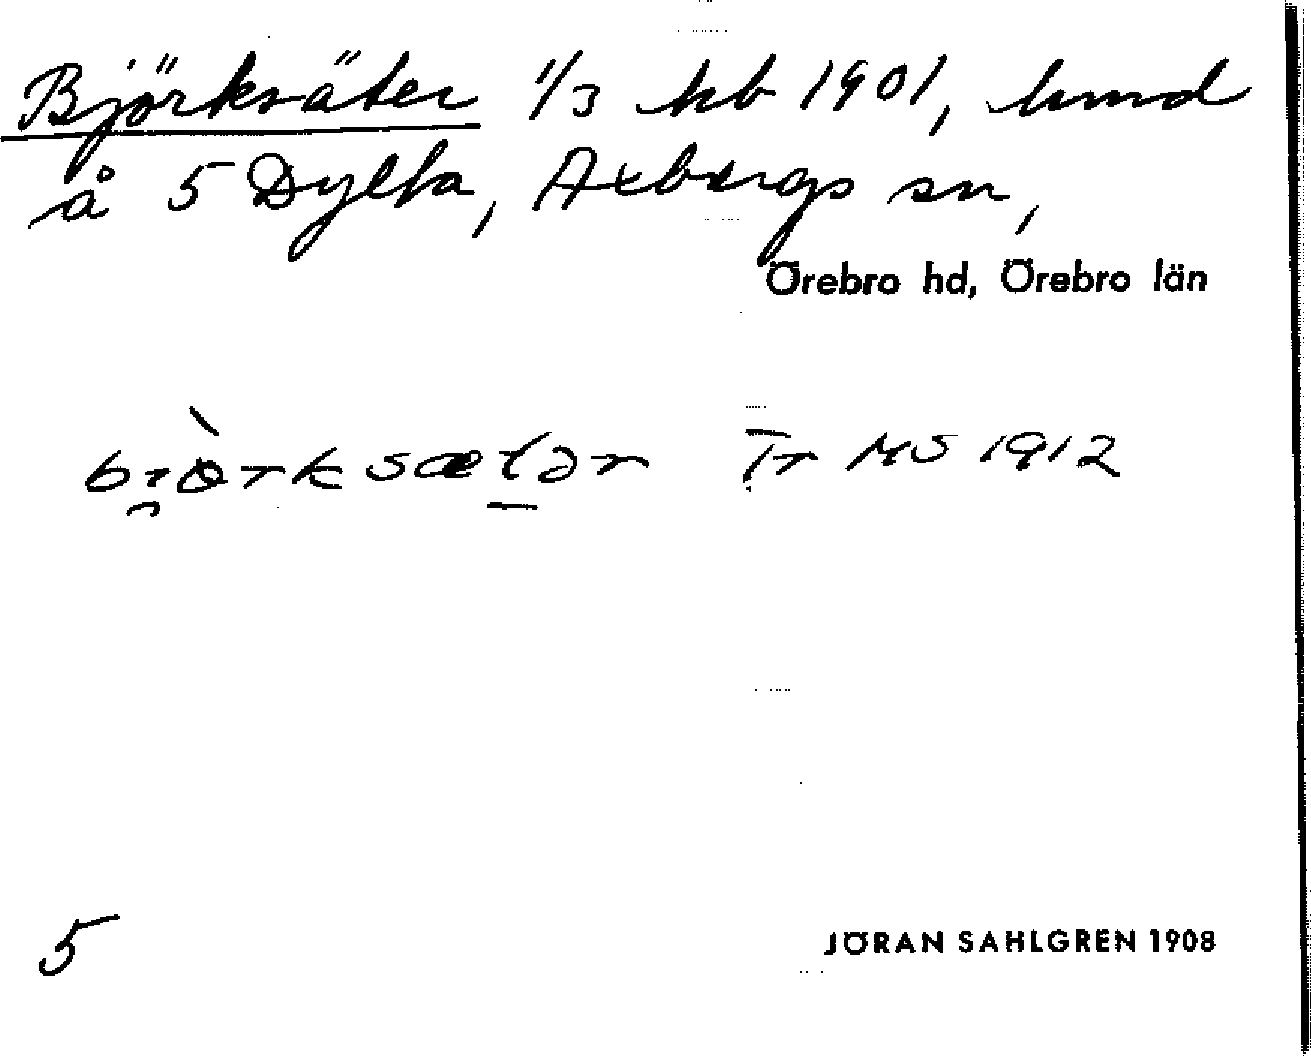 Björksäter 1/3 kb 1901, hmd
å 5 Dylta, Axbergs sn,
Örebro hd, Örebro län
Tr MS 1912
5
JÖRAN SAHLGREN 1908